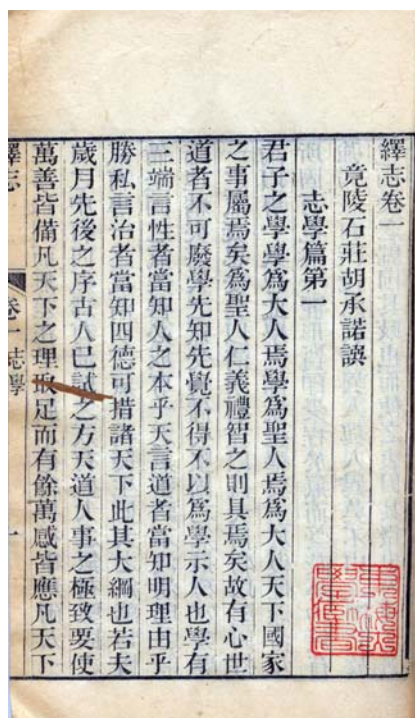 繹志卷一
竟陵石莊胡承諾譔
志學篇第一
君子之學學爲大人焉學爲聖人焉爲大人天下國家
之事屬焉矣爲聖人仁義禮智之則具焉矣故有心世
道者不可廢學先知先覺不得不以爲學示人也學有
三端言性者當知人之本乎天言道者當知明理由乎
勝私言治者當知四德可措諸天下此其大綱也若夫
歲月先後之序古人已試之方天道人事之極致要使
萬善皆備凡天下之理取足而有餘萬感皆應凡天下
繹志 卷一 志學 一